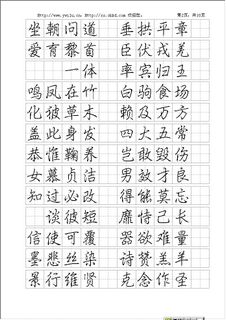 坐朝问道 垂拱平章
爱育黎首 臣伏戎羌
一体 率宾归王
鸣凤在竹 白驹食场
化被草木 赖及万方
盖此身发 四大五常
恭惟鞠养 岂敢毁伤
女慕贞洁 男效才良
知过必改 得能莫忘
谈彼短 靡恃己长
信使可覆 器欲难量
墨悲丝染 诗赞羔羊
景行维贤 克念作圣